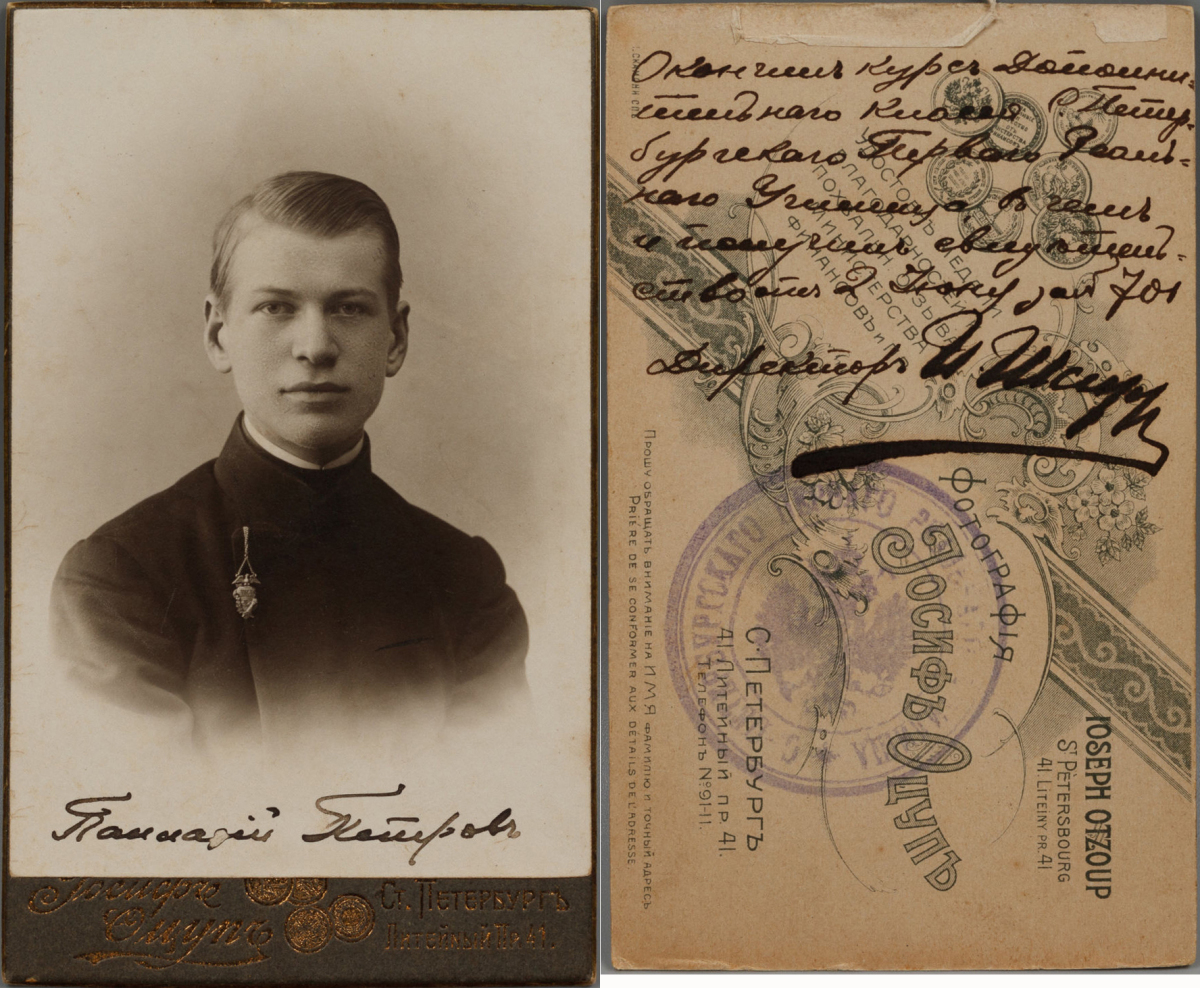 Палладій Петровъ
Іосифъ
Оцупъ
Ст. Петербургъ
Литейный Пр. 41.
Окончилъ курсъ Дополни-
тельнаго класса С. Петер-
бургскаго Перваго Реаль-
наго Училища, въ чемъ
и получилъ свидѣтель-
ство отъ 2 Іюня за № 701
Директоръ И.
УДОСТОЕНЪ МЕДАЛ.
БЛАГОДАРНОСТЕЙ
ПОХВАЛЬН. ОТЗЫВА
МИНИСТЕРСТВА
ФИНАНСОВЪ И
ФОТОГРАФІЯ
Іосифъ Оцупъ
С. ПЕТЕРБУРГЪ
41. ЛИТЕЙНЫЙ ПР. 41.
ТЕЛЕФОНЪ №91-11.
IOSEPH OTZOUP
ST PÈTERSBOURG
41. LITEINY PR. 41
ПРОШУ ОБРАЩАТЬ ВНИМАНІЕ НА ИМЯ ФАМИЛІЮ И ТОЧНЫЙ АДРЕСЪ
PRIÈRE DE SE CONFORMER AUX DÉTAILS DE L'ADRESSE